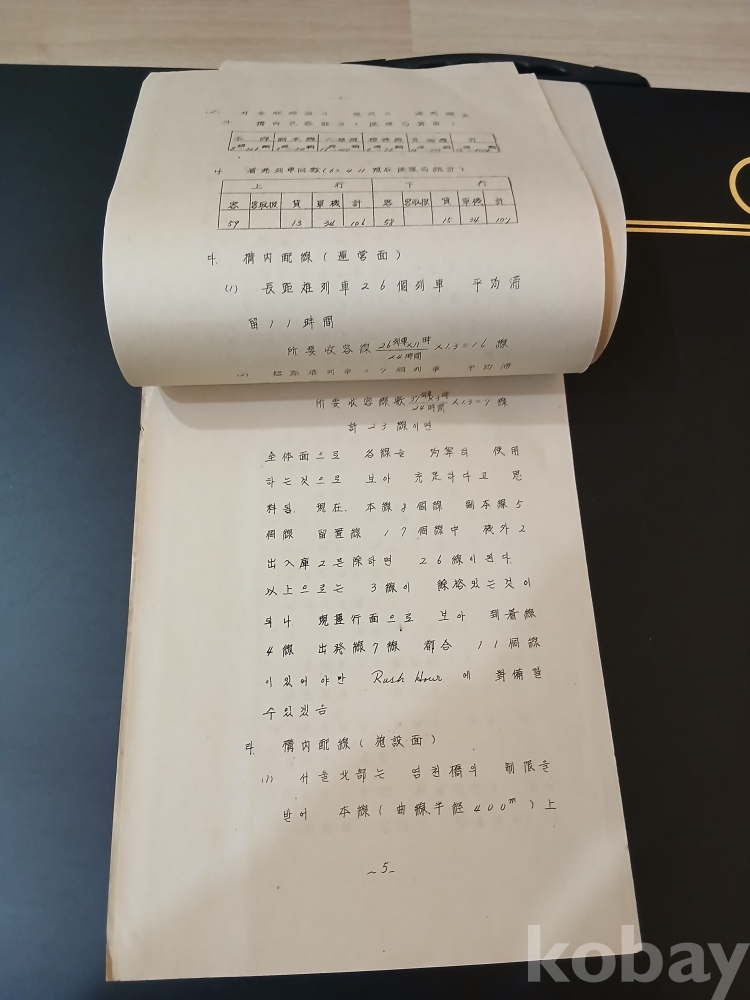 나. 着発列車回数(63.4.11 現在 統計)
上 行 下 行
客 客収収 貨 單機 計 客 客収収 貨 單機 計
59 13 34 106 58 15 34 107
다. 構內配線(運営面)
(1) 長距離列車 26個列車 平均滞
留 11時間
所要收容線 26列車×11時/24時間 ×1.5=16 線
(2) 短距離列車 37個列車 平均滞
所要收容線数 37列車×3時/24時間 ×1.5=7 線
計 23線이면
全体面으로 各線을 均等히 使用
하는것으로 보아 充足하다고 思
料됨. 現在. 本線 8個線 副本線 5
個線 留置線 17個線中 機外2
出入庫2를除하면 26線이된다.
以上으로는 3線이 餘裕있는것이
되나 現運行面으로 보아 到着線
4線 出発線7線 都合 11個線
이있어야만 Rush Hour 에 對備할
수있겠음
라. 構內配線(施設面)
(1) 서울北部는 염천橋의 制限을
받어 本線(曲線半径 400m)上
~5-
kobay